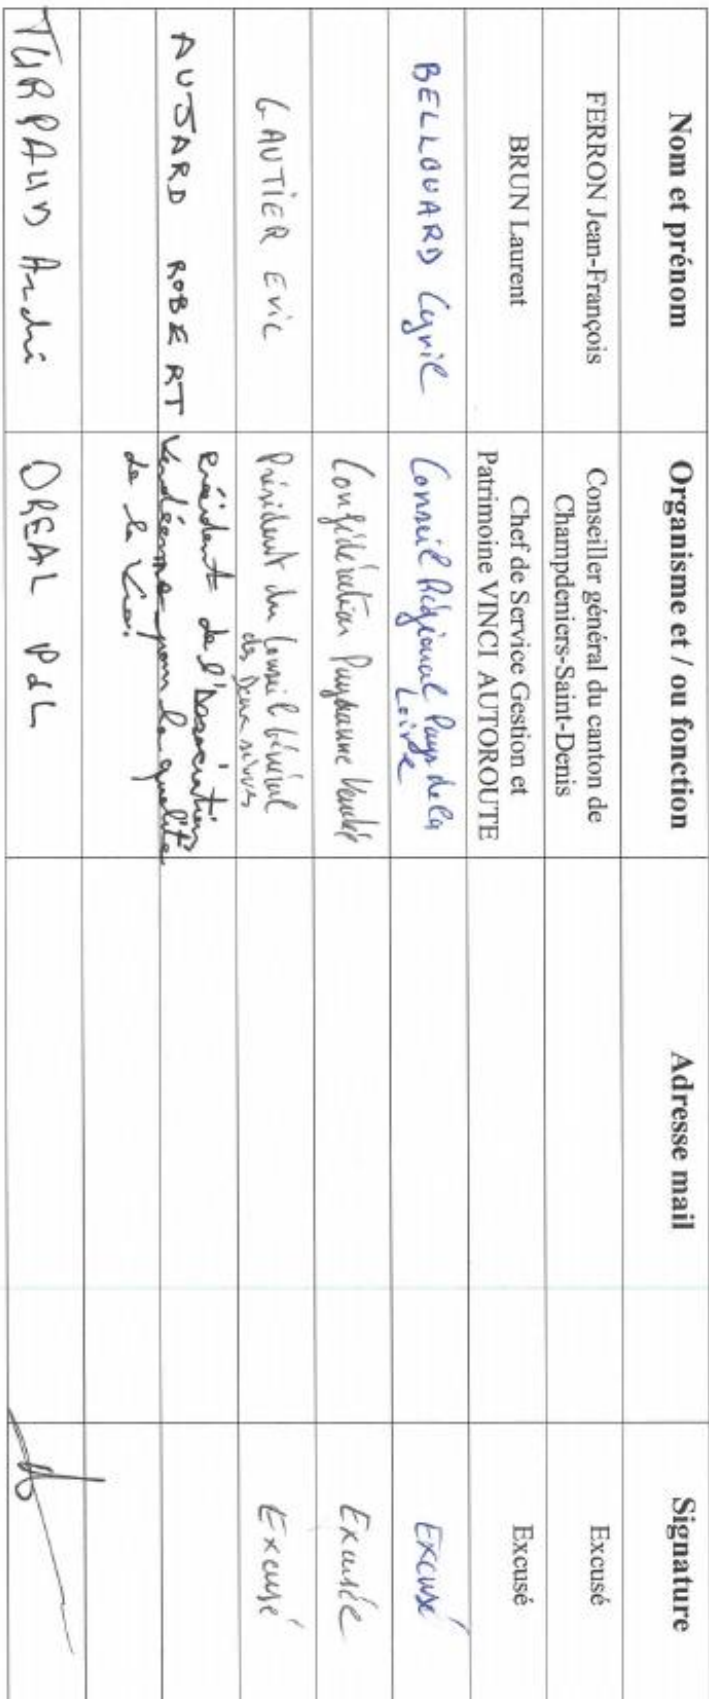 Nom et prénom Organisme et / ou fonction Adresse mail Signature
FERRON Jean-François Conseiller général du canton de
Champdeniers-Saint-Denis Excusé
BRUN Laurent Chef de Service Gestion et
Patrimoine VINCI AUTOROUTE Excusé
BELLOUARD Cyril Conseil Régional Pays de la
Loire Excusé
Confédération Paysanne Vendée Excusée
GAUTIER Eric Président du Conseil Général
des Deux sèvres Excusé
AUJARD ROBERT Président de l'Association
Vendéenne pour la qualité
de la Vie.
TURPAUD André DREAL PdL